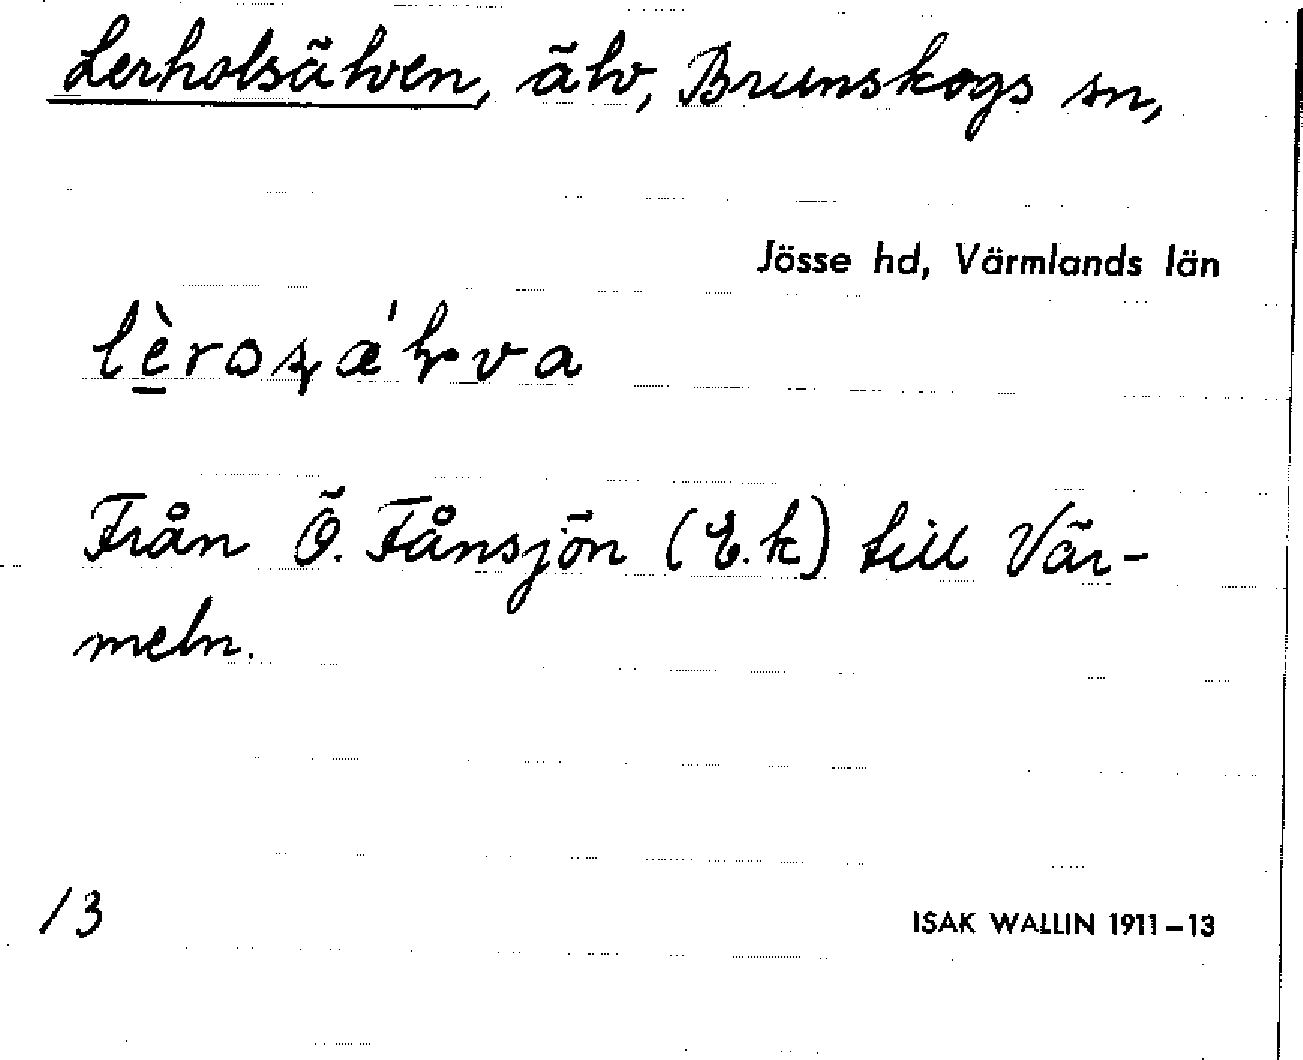 Lerholsälven, älv, Brunskogs sn,
Jösse hd, Värmlands län
Från Ö. Fånsjön (E.k) till Vär-
meln.
13
ISAK WALLIN 1911–13